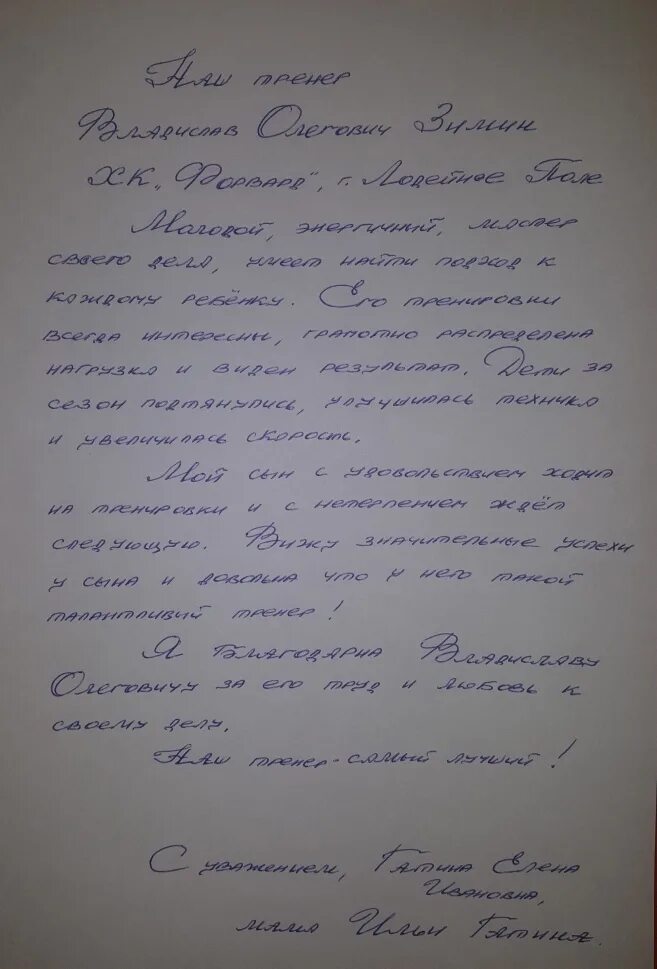 Наш тренер
Владислав Олегович Зимин
ХК „Форвард", г. Лодейное Поле
Молодой, энергичный, мастер
своего дела, умеет найти подход к
каждому ребёнку. Его тренировки
всегда интересны, грамотно распределена
нагрузка и виден результат. Дети за
сезон подтянулись, улучшилась техника
и увеличилась скорость.
Мой сын с удовольствием ходит
на тренировки и с нетерпением ждёт
следующую. Вижу значительные успехи
у сына и довольна что у него такой
талантливый тренер!
Я благодарна Владиславу
Олеговичу за его труд и любовь к
своему делу.
Наш тренер - самый лучший!
С уважением, Гатина Елена
Ивановна,
мама Ильи Гатина.